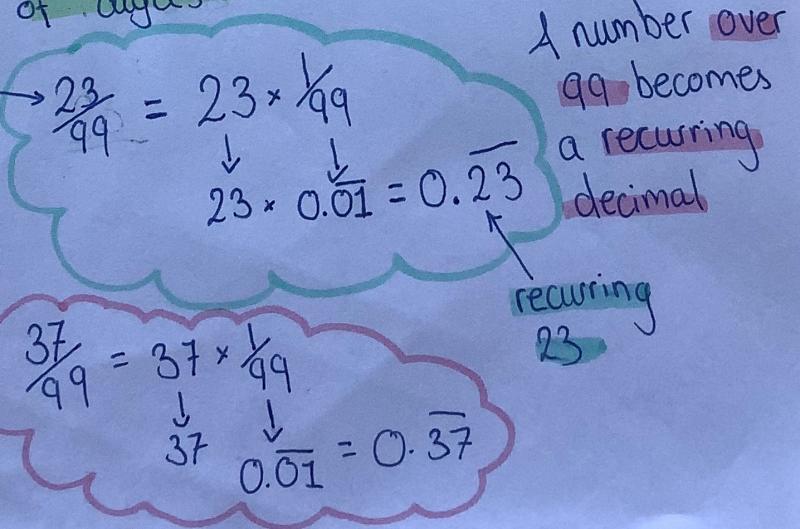 of
23/99 = 23 × 1/99
23 × 0.0̅1̅ = 0.2̅3̅
A number over
99 becomes
a recurring
decimal
recurring
23
37/99 = 37 × 1/99
37 0.0̅1̅ = 0.3̅7̅